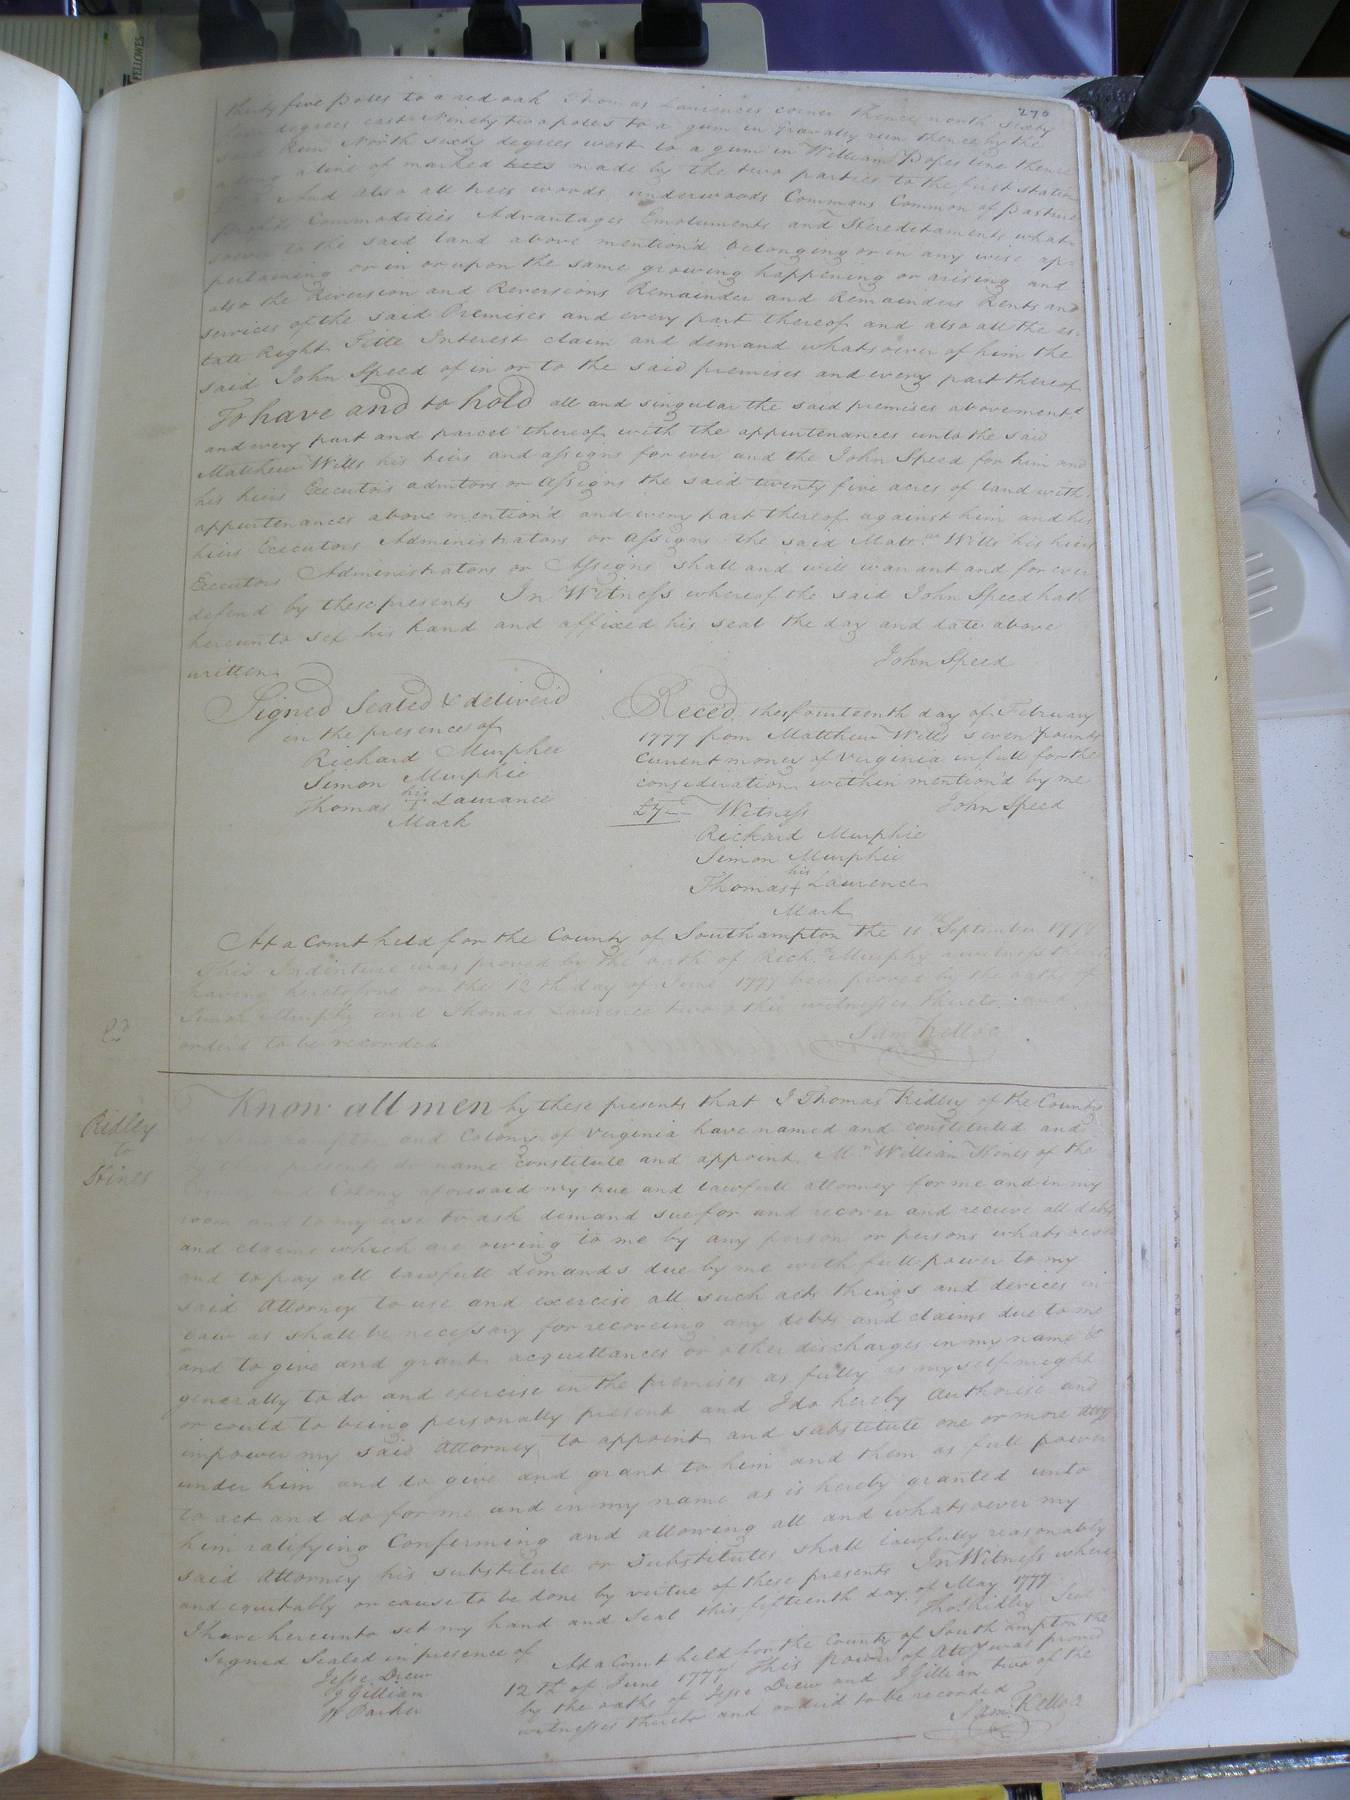 FELLOWES
270
thirty five poles to a red oak Thomas Laurences corner thence north sixty
four degrees east Ninety two poles to a gum in Gravally run thence by the
said Run North sixty degrees west to a gum in William Popes line thence
along a line of marked trees made by the two parties to the first station
And also all trees woods underwoods Commons Common of Pasture
profits Commodities Advantages Emoluments and Hereditaments what-
soever to the said land above mention'd belonging or in any wise ap-
pertaining or in or upon the same growing happening or arising and
also the Reversion and Reversions Remainder and Remainders Rents and
services of the said Premises and every part thereof and also all the es-
tate Right Title Interest claim and demand whatsoever of him the
said John Speed of in or to the said premises and every part thereof
To have and to hold all and singular the said premises abovementd
and every part and parcel thereof with the appurtenances unto the said
Matthew Wills his heirs and assigns for ever and the John Speed for him and
his heirs Executors admitors or Assigns the said twenty five acres of land with
appurtenances above mention'd and every part thereof against him and his
heirs Executors Administrators or Assigns the said Matt:w Wills his heirs
Executors Administrators or Assigns shall and will warrant and for ever
defend by these presents In Witness whereof the said John Speed hath
hereunto set his hand and affixed his seal the day and date above
written
John Speed
Signed Sealed & deliverd
in the presence of
Richard Murphie
Simon Murphie
his
Thomas + Laurance
Mark
Recev'd this fourteenth day of February
1777 from Matthew Wills seven pounds
current money of Virginia in full for the
consideration within mention'd by me
£7 Witness John Speed
Richard Murphie
Simon Murphie
his
Thomas + Laurence
Mark
At a Court held for the County of Southampton the 11th September 1777
This Indenture was proved by the oath of Rich.d Murphy a witness thereto
having heretofore on the 12th day of June 1777 been proved by the oaths of
Simon Murphy and Thomas Laurence two other witnesses thereto and
order'd to be recorded
Sam Kello C
Ridley
to
Hines
Know all men by these presents that I Thomas Ridley of the County
of Southampton and Colony of Virginia have named and constituted and
by these presents do name constitute and appoint Mr William Hines of the
County and Colony aforesaid my true and lawfull attorney for me and in my
room and to my use to ask demand sue for and recover and receive all debts
and claims which are owing to me by any person or persons whatsoever
and to pay all lawfull demands due by me with full power to my
said Attorney to use and exercise all such acts things and devices in
Law as shall be necessary for recovering any debts and claims due to me
and to give and grant acquittances or other discharges in my name &
generally to do and exercise in the premises as fully as my self might
or could to being personally present and I do hereby Authorise and
impower my said Attorney to appoint and substitute one or more atty
under him and to give and grant to him and them as full power
to act and do for me and in my name as is hereby granted unto
him ratifying Confirming and allowing all and whatsoever my
said Attorney his substitute or substitutes shall lawfully reasonably
and equitably or cause to be done by virtue of these presents In Witness where
I have hereunto set my hand and Seal this fifteenth day of May 1777
Thos Ridley Seal
Signed Sealed in presence of
Jesse Drew
J Gillian
W Parker
At a Court held for the County of Southampton the
12th of June 1777 This power of Atty was proved
by the oaths of Jesse Drew and J Gillian two of the
witnesses thereto and order'd to be recorded
Sam Kello C